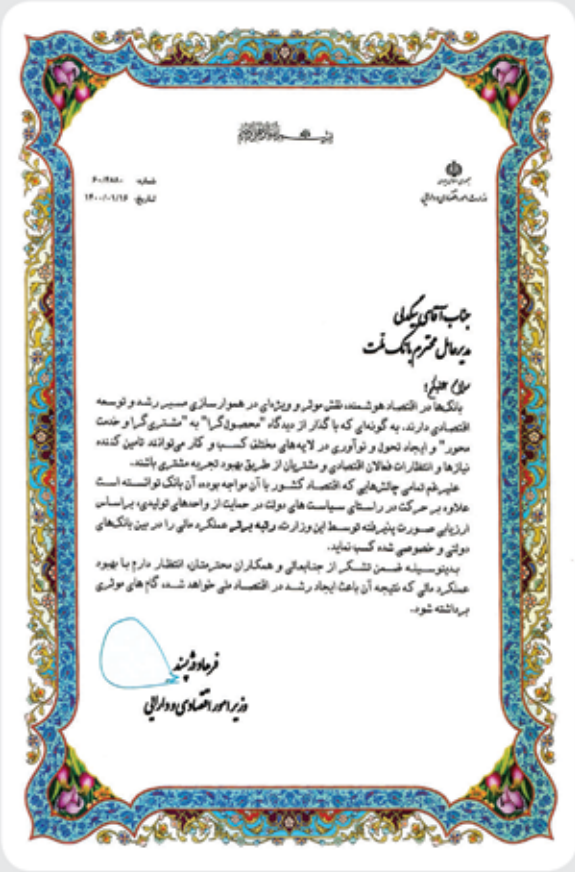 بسم الله الرحمن الرحیم
جمهوری اسلامی ایران
وزارت امور اقتصادی و دارایی
شماره: ۶۰/۴۸۸۰
تاریخ: ۱۴۰۰/۰۱/۱۶
جناب آقای بیگدلی
مدیرعامل محترم بانک ملت
سلام علیکم؛
بانک‌ها در اقتصاد هوشمند، نقش موثر و ویژه‌ای در هموارسازی مسیر رشد و توسعه
اقتصادی دارند، به گونه‌ای که با گذار از دیدگاه "محصول‌گرا" به "مشتری‌گرا و خدمت
محور" و ایجاد تحول و نوآوری در لایه‌های مختلف کسب و کار می‌توانند تامین کننده
نیازها و انتظارات فعالان اقتصادی و مشتریان از طریق بهبود تجربه مشتری باشند.
علیرغم تمامی چالش‌هایی که اقتصاد کشور با آن مواجه بوده، آن بانک توانسته است
علاوه بر حرکت در راستای سیاست های دولت در حمایت از واحدهای تولیدی، براساس
ارزیابی صورت پذیرفته توسط این وزارت، رتبه برتر عملکرد مالی را در بین بانک‌های
دولتی و خصوصی شده کسب نماید.
بدینوسیله ضمن تشکر از جنابعالی و همکاران محترمتان، انتظار دارم با بهبود
عملکرد مالی که نتیجه آن باعث ایجاد رشد در اقتصاد ملی خواهد شد، گام های موثری
برداشته شود.
فرهاد دژپسند
وزیر امور اقتصادی و دارایی